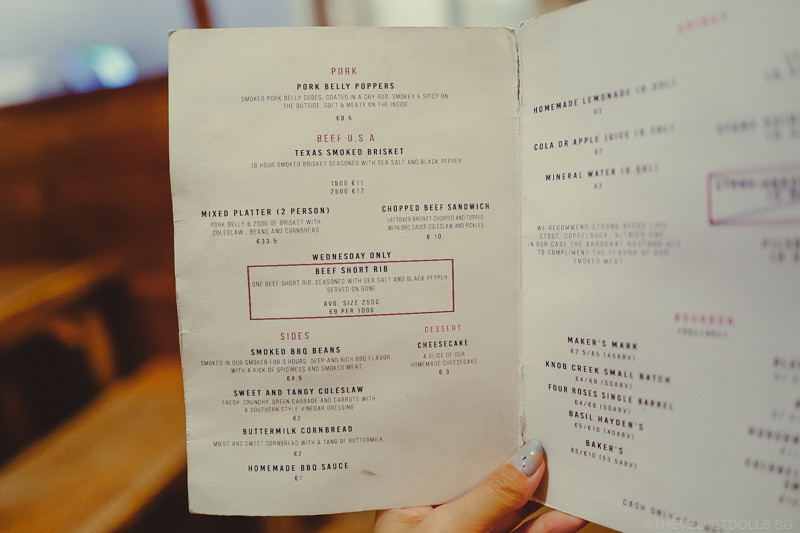 PORK
PORK BELLY POPPERS
SMOKED PORK BELLY CUBES, COATED IN A DRY RUB. SMOKEY & SPICY ON
THE OUTSIDE, SOFT & MEATY ON THE INSIDE
€8.5
BEEF U.S.A
TEXAS SMOKED BRISKET
18 HOUR SMOKED BRISKET SEASONED WITH SEA SALT AND BLACK PEPPER
150G €11
250G €17
MIXED PLATTER (2 PERSON)
PORK BELLY & 250G OF BRISKET WITH
COLESLAW, BEANS AND CORNBREAD
€33.5
CHOPPED BEEF SANDWICH
LEFTOVER BRISKET CHOPPED AND TOPPED
WITH BBQ SAUCE COLESLAW AND PICKLES
€ 10
WEDNESDAY ONLY
BEEF SHORT RIB
ONE BEEF SHORT RIB, SEASONED WITH SEA SALT AND BLACK PEPPER
SERVED ON BONE
AVG. SIZE 250G
€9 PER 100G
SIDES
SMOKED BBQ BEANS
SMOKED IN OUR SMOKER FOR 3 HOURS, DEEP AND RICH BBQ FLAVOR,
WITH A KICK OF SPICINESS AND SMOKED MEAT
€4.5
SWEET AND TANGY COLESLAW
FRESH, CRUNCHY, GREEN CABBAGE AND CARROTS WITH
A SOUTHERN STYLE VINEGAR DRESSING
€2
BUTTERMILK CORNBREAD
MOIST AND SWEET CORNBREAD WITH A TANG OF BUTTERMILK
€2
HOMEMADE BBQ SAUCE
€1
DESSERT
CHEESECAKE
A SLICE OF OUR
HOMEMADE CHEESECAKE
€ 3
DRINKS
HOMEMADE LEMONADE
€3
COLA OR APPLE JUICE
€2
MINERAL WATER
€3
WE RECOMMEND STRONG BEERS LIKE
STOUT, DOPPELBOCK, ALTBIER AND
IN OUR CASE THE ARROGANT BASTARD ALE
TO COMPLIMENT THE FLAVOR OF OUR
SMOKED MEAT
BOURBON
MAKER'S MARK
€2.5/€5 (45ABV)
KNOB CREEK SMALL BATCH
€4/€8 (50ABV)
FOUR ROSES SINGLE BARREL
€4/€8 (50ABV)
BASIL HAYDEN'S
€5/€10 (40ABV)
BAKER'S
€5/€10 (53.5ABV)
CASH ONLY
©THEVELVETDOLLS.SG